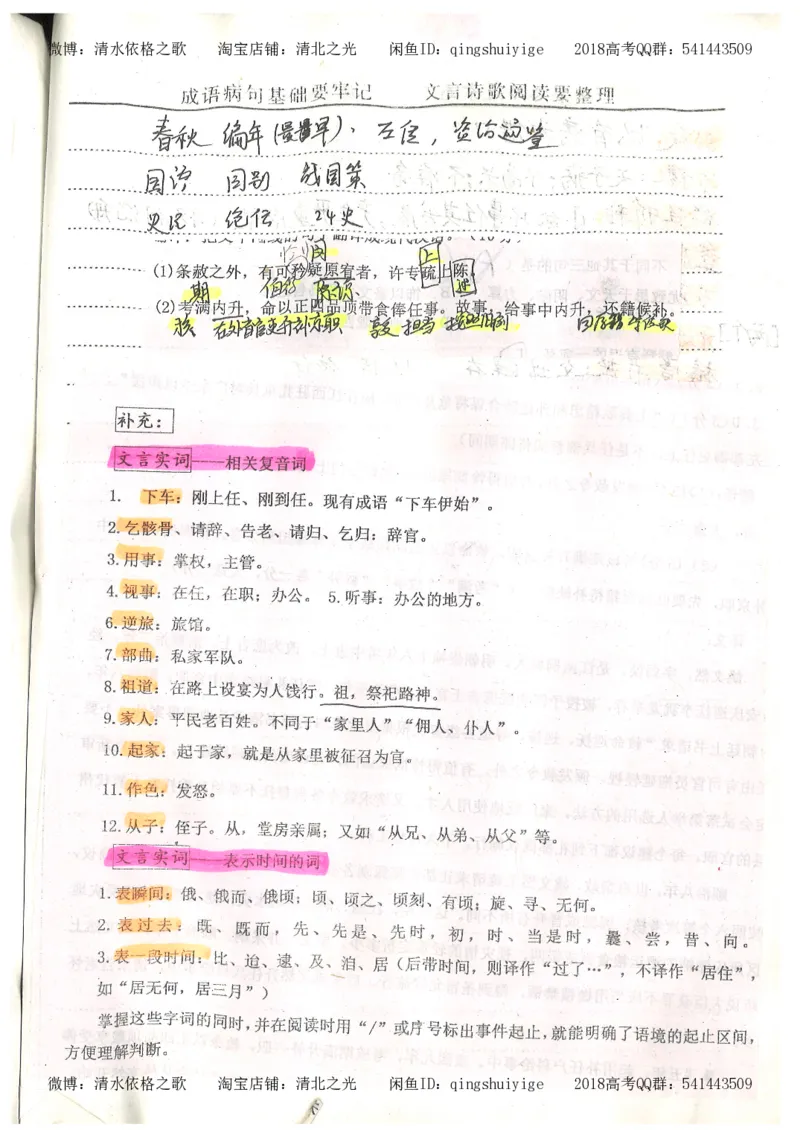 微博：清水依格之歌 淘宝店铺：清北之光 闲鱼ID：qingshuiyige 2018高考QQ群：541443509
成语病句基础要牢记 文言诗歌阅读要整理
春秋 编年(最早)、左传，资治通鉴
国语 国别 战国策
史记 纪传 24史
(1)条赦之外，有可矜疑原宥者，许专疏上陈。
(2)考满内升，命以正四品顶带食俸任事。故事，给事中内升，还籍候补。
补充：
文言实词——相关复音词
1. 下车：刚上任、刚到任。现有成语“下车伊始”。
2.乞骸骨、请辞、告老、请归、乞归：辞官。
3.用事：掌权，主管。
4.视事：在任，在职；办公。 5.听事：办公的地方。
6.逆旅：旅馆。
7.部曲：私家军队。
8.祖道：在路上设宴为人饯行。祖，祭祀路神。
9.家人：平民老百姓。不同于“家里人”“佣人、仆人”。
10.起家：起于家，就是从家里被征召为官。
11.作色：发怒。
12.从子：侄子。从，堂房亲属；又如“从兄、从弟、从父”等。
文言实词——表示时间的词
1.表瞬间：俄、俄而、俄顷；顷、顷之、顷刻、有顷；旋、寻、无何。
2.表过去：既、既而，先、先是、先时，初，时、当是时，曩、尝，昔、向。
3.表一段时间：比、迨、逮、及、洎、居（后带时间，则译作“过了…”，不译作“居住”，
如“居无何，居三月”）
掌握这些字词的同时，并在阅读时用“/”或序号标出事件起止，就能明确了语境的起止区间，
方便理解判断。
微博：清水依格之歌 淘宝店铺：清北之光 闲鱼ID：qingshuiyige 2018高考QQ群：541443509